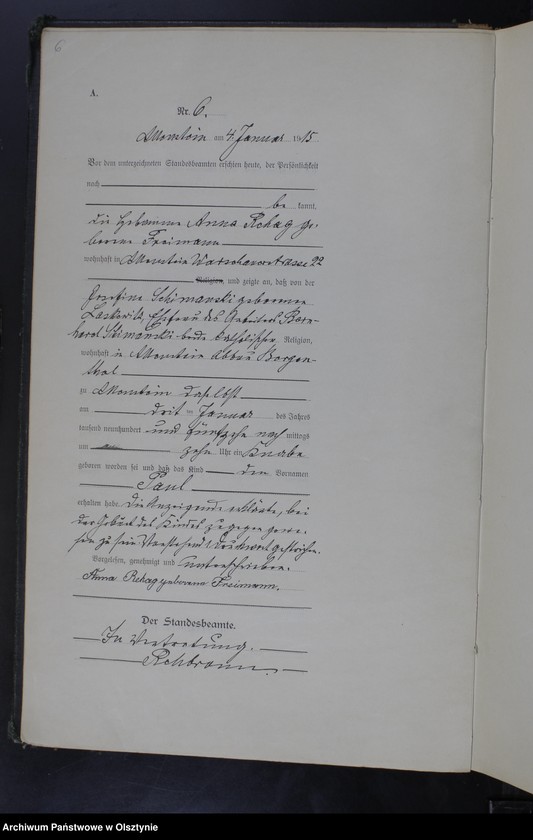 6
A.
Nr. 6.
Allenstein am 4. Januar 1915
Vor dem unterzeichneten Standesbeamten erschien heute, der Persönlichkeit
nach
be kannt,
die Hebamme Anna Rehag ge-
borene Freimann
wohnhaft in Allenstein Warschauerstrasse 22
Religion, und zeigte an, daß von der
Josefine Schimanski geborenen
Ehefrau des Arbeiters Bern-
hard Schimanski beide katholischer Religion,
wohnhaft in Allenstein Abbau Bergen-
thal
zu Allenstein daselbst
am drit en Januar des Jahres
tausend neunhundert und fünfzehn nach mittags
um zehn Uhr ein Knabe
geboren worden sei und daß das Kind den Vornamen
Paul
erhalten habe. Die Anzeigende erklärte, bei
der Geburt des Kindes zugegen gewe-
sen zu sein. Vorstehend 1 Druckwort gestrichen.
Vorgelesen, genehmigt und unterschrieben.
Anna Rehag geborene Freimann.
Der Standesbeamte.
In Vertretung.
Archiwum Państwowe w Olsztynie